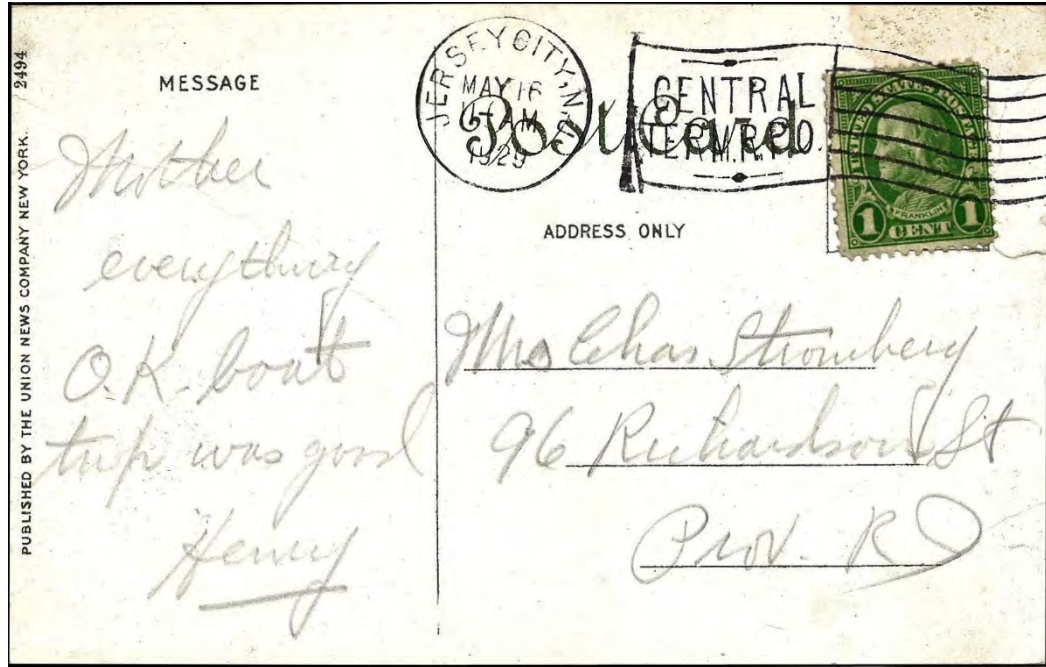 2494
PUBLISHED BY THE UNION NEWS COMPANY NEW YORK.
MESSAGE
Mother
everything
O.K. boat
trip was good
Henry
JERSEY CITY, N.J.
MAY 16
AM
1929
CENTRAL
TERM. R.P.O.
Post Card
UNITED STATES POSTAGE
FRANKLIN
1 CENT 1
ADDRESS ONLY
Mrs Chas. Stromberg
96 Richardson St
Prov. RI